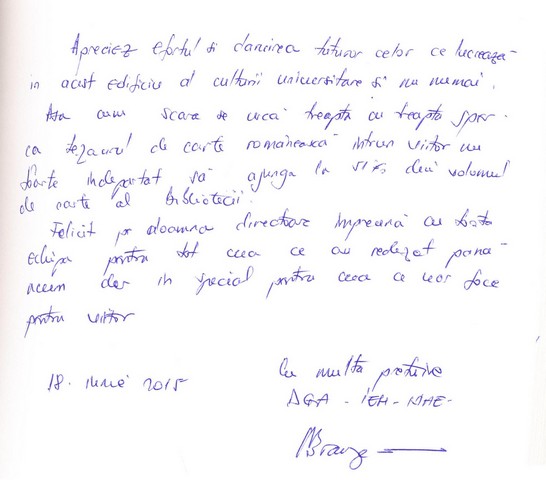 Apreciez efortul si daruirea tuturor celor ce lucreaza
in acest edificiu al culturii universitare si nu numai.
Asa cum scara se urca treapta cu treapta sper
ca tezaurul de carte românească intrun viitor nu
foarte indepartat să ajunga la 51% din volumul
de carte al Bibliotecii.
Felicit pe doamna directoare impreună cu toata
echipa pentru tot ceea ce au realizat pană
acum dar in special pentru ceea ce vor face
pentru viitor
18. iunie 2015
Cu multa pretuire